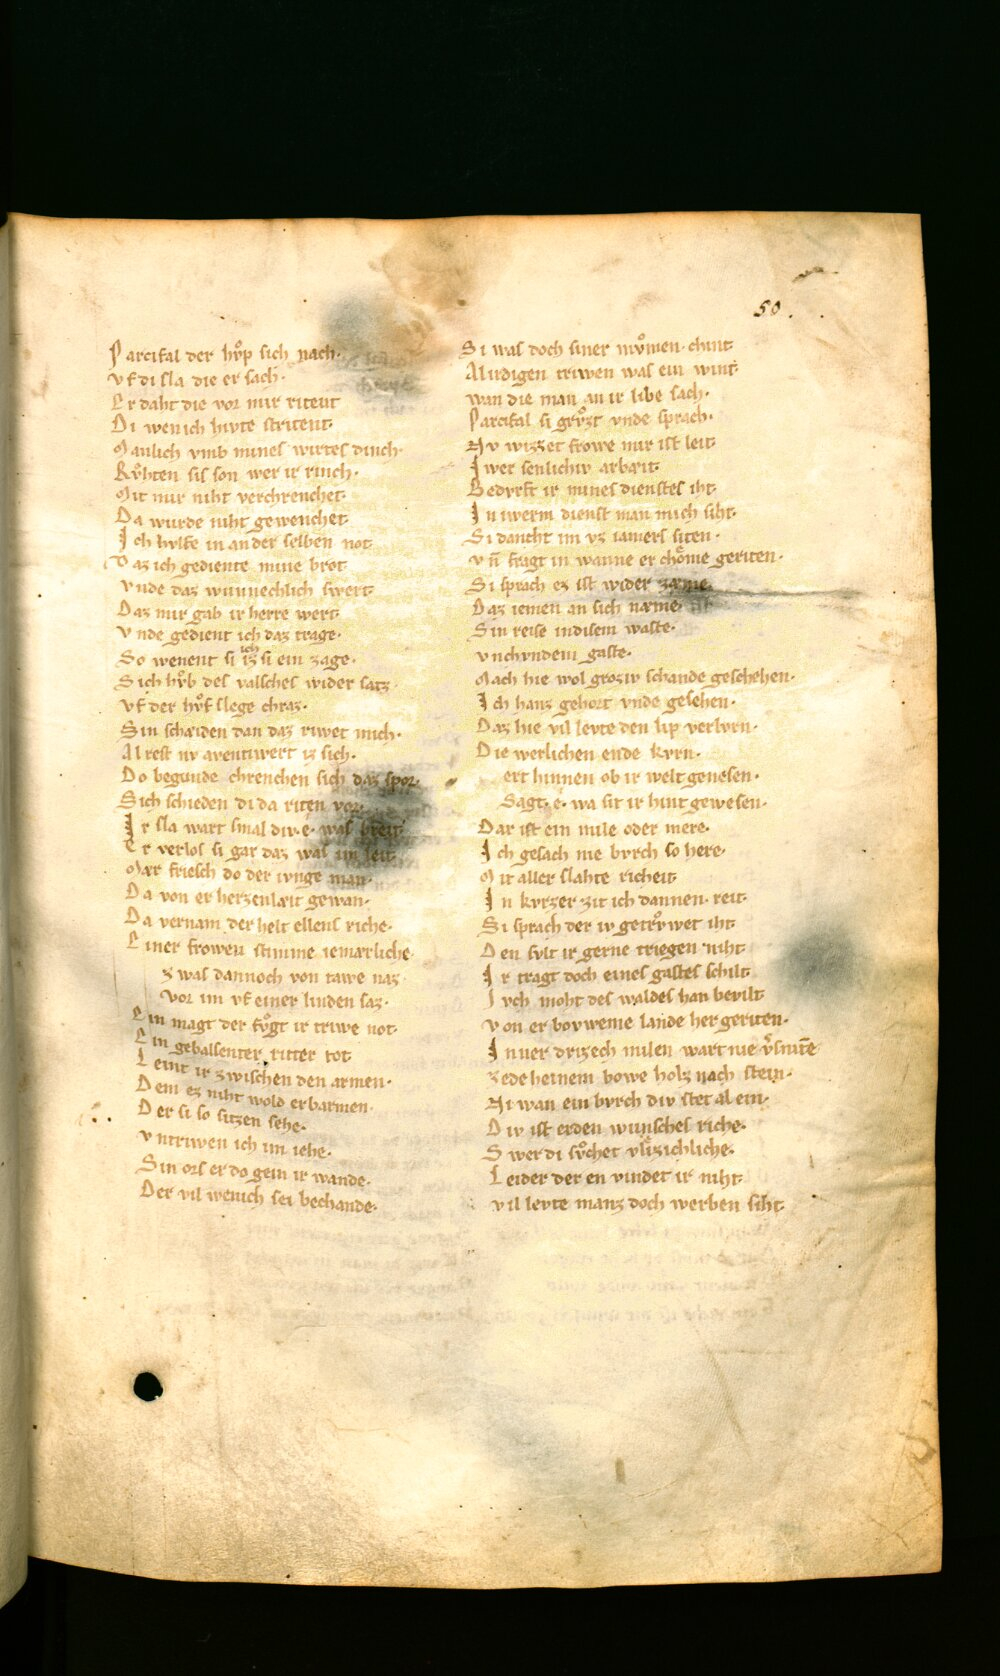 50.
Parcifal der hvͦp sich nach.
vf di sla die er sach.
Er daht die vor mir riteut
Di wen ich hivte stritent.
Manlich vmb mines wirtes dinch.
Rvͦhten sis son wer ir rinch.
Mit mir niht verchrenchet.
Da wurde niht gewenchet.
Ich hvlfe in an der selben not.
Daz ich gediente mine brot
vnde daz wunnechlich swert.
Daz mir gab ir herre wert.
vnde gedient ich daz trage.
So wenent si ich iz si ein zage.
Sich hvͦb des valsches wider satz
vf der hvͦf slege chraz.
Sin schæiden dan daz riwet mich.
Alrest nv aventiwert iz sich.
Do begunde chrenchen sich daz spor.
Sich schieden di da riten vor.
Ir sla wart smal div e. was breit
Er verlos si gar daz was im leit.
Mær friesch do der ivnge man.
Da von er herzenlæit gewan.
Da vernam der helt ellens riche.
Einer frowen stimme iemærliche.
z was dannoch von tawe naz.
vor im vf einer linden saz.
Ein magt der fvͦgt ir triwe not.
Ein gebalsenter ritter tot
Leint ir zwischen den armen.
Dem ez niht wold erbarmen.
Der si so sitzen sehe.
vntriwen ich im iehe.
Sin ors er do gein ir wande.
Der vil wenich sei bechande.
Si was doch siner mvͦmen. chint
Al irdigen triwen was ein wint.
wan die man an ir libe sach.
Parcifal si grvͦzt vnde sprach.
Nv wizzet frowe mir ist leit
Iwer senlichiv arbæit.
Bedvrft ir mines dienstes iht.
In iwerm dienst man mich siht.
Si dancht im vz iamers siten.
vn̄ fragt in wanne er chome geriten.
Si sprach ez ist wider zæme.
Daz iemen an sich næme.
Sin reise in disem waste.
vnchvndem gaste.
Mach hie wol groziv schande geschehen.
Ich hanz gehort vnde gesehen.
Daz hie vil levte den lip verlvrn.
Die werlichen ende kvrn.
ert hinnen ob ir welt genesen.
Sagt. e. wa sit ir hint gewesen.
Dar ist ein mile oder mere.
Ich gesach nie bvrch so here.
Mit aller slahte richeit.
In kvrzer zit ich dannen. reit.
Si sprach der iv getrvͦwet iht.
Den svlt ir gerne triegen niht
Ir tragt doch eines gastes schilt
Ivch moht des waldes han bevilt
von erbovweme lande her geriten.
Inner drizech milen wart nie v̓snitē
zedeheinem bowe holz nach stein.
Niwan ein bvrch div stet al ein.
Div ist erden wunsches riche.
Swer di svͦchet vlizichliche.
Leider der en vindet ir niht.
vil levte manz doch werben siht.